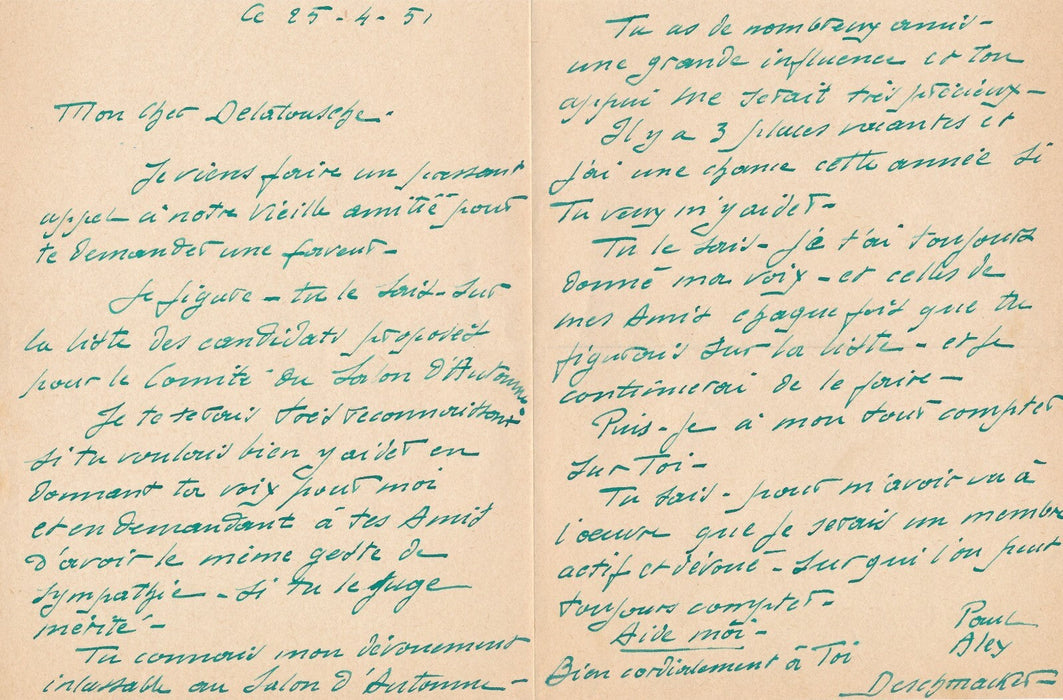 Ce 25-4-51
Mon cher Delatousche.
Je viens faire un pressant
appel à notre vieille amitié pour
te demander une faveur-
Je figure - tu le sais - sur
la liste des candidats proposés
pour le Comité du Salon d'Automne
Je te serais très reconnaissant
si tu voulais bien y aider en
donnant ta voix pour moi
et en demandant à tes Amis
d'avoir le même geste de
sympathie - si tu le juge
mérité-
Tu connais mon dévouement
inlassable au Salon d'Automne-
Tu as de nombreux amis-
une grande influence et ton
appui me serait très précieux-
Il y a 3 places vacantes et
j'ai une chance cette année si
Tu veux m'y aider-
Tu le sais - je t'ai toujours
donné ma voix - et celles de
mes Amis chaque fois que tu
figurais sur la liste - et je
continuerai de le faire-
Puis-je à mon tour compter
sur Toi-
Tu sais - pour m'avoir vu à
l'œuvre que je serais un membre
actif et dévoué - sur qui l'on peut
toujours compter-
Aide moi-
Bien cordialement à Toi
Paul
Alex
Deschmacker-